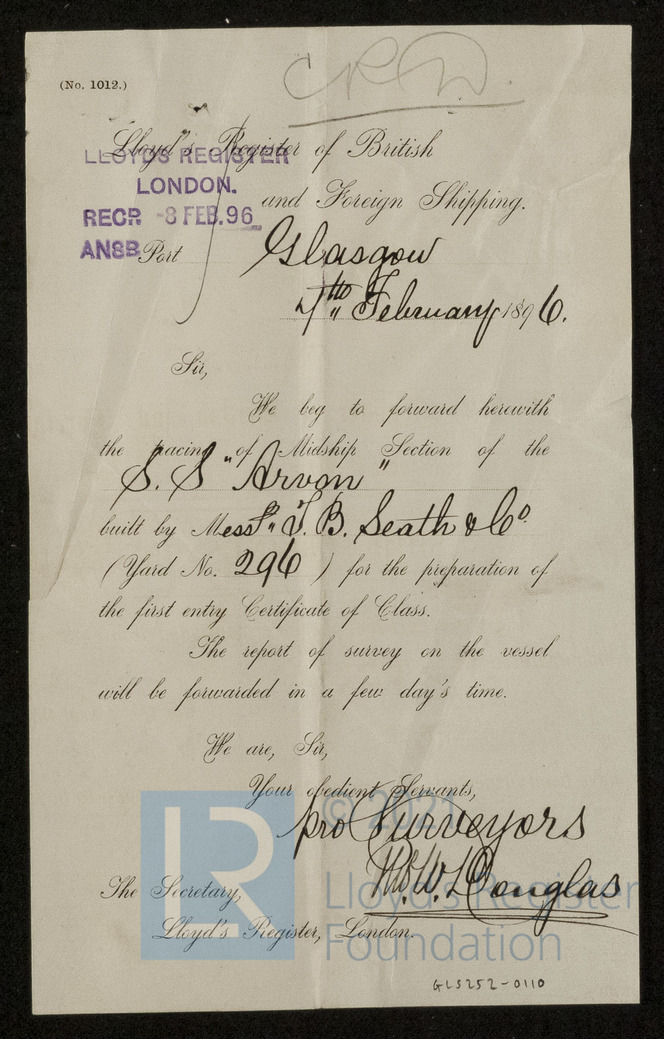 (No. 1012.)
C R W.
Lloyd's Register of British
LLOYDS REGISTER
LONDON.
and Foreign Shipping.
RECR -8 FEB. 96
ANSB.
Port Glasgow
7th February 1896.
Sir,
We beg to forward herewith
the tracing of Midship Section of the
S. S "Arvon"
built by Messrs. T. B. Seath & Co.
(Yard No. 296) for the preparation of
the first entry Certificate of Class.
The report of survey on the vessel
will be forwarded in a few day's time.
We are, Sir,
Your obedient Servants,
pro Surveyors
W. Douglas
The Secretary,
Lloyd's Register, London.
LR
© 2021
Lloyd's Register
Foundation
GLS252-0110